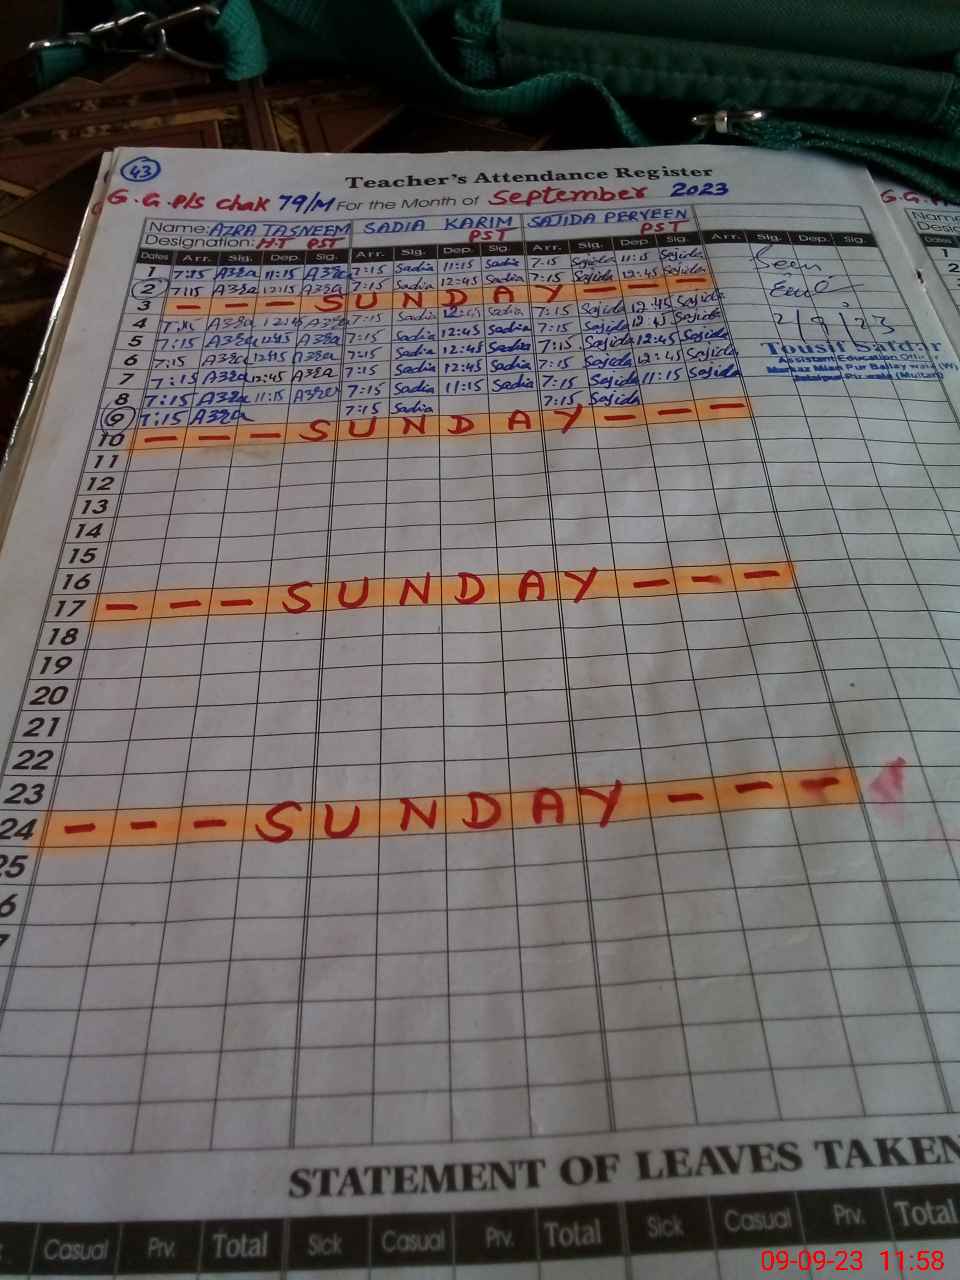 43
Teacher's Attendance Register
G.G.P/S Chak 79/M For the Month of September 2023
Name: AZRA TASNEEM SADIA KARIM SAJIDA PERVEEN
Designation: H.T PST PST PST
Dates Arr. Sig. Dep. Sig. Arr. Sig. Dep. Sig. Arr. Sig. Dep. Sig. Arr. Sig. Dep. Sig.
1 7:15 Azra 11:15 Azra 7:15 Sadia 11:15 Sadia 7:15 Sajida 11:15 Sajida
2 7:15 Azra 12:15 Azra 7:15 Sadia 12:45 Sadia 7:15 Sajida 12:45 Sajida
3 - - - S U N D A Y - - -
4 7:15 Azra 12:45 Azra 7:15 Sadia 12:45 Sadia 7:15 Sajida 12:45 Sajida
5 7:15 Azra 12:45 Azra 7:15 Sadia 12:45 Sadia 7:15 Sajida 12:45 Sajida
6 7:15 Azra 12:45 Azra 7:15 Sadia 12:45 Sadia 7:15 Sajida 12:45 Sajida
7 7:15 Azra 12:45 Azra 7:15 Sadia 12:45 Sadia 7:15 Sajida 12:45 Sajida
8 7:15 Azra 11:15 Azra 7:15 Sadia 11:15 Sadia 7:15 Sajida 11:15 Sajida
9 7:15 Azra 7:15 Sadia 7:15 Sajida
Seen
2/9/23
Tousif Safdar
Assistant Education Officer
Markaz Mian Pur (W)
Jalalpur Pirwala (Multan)
10 - - - S U N D A Y - - -
11
12
13
14
15
16
17 - - - S U N D A Y - - -
18
19
20
21
22
23
24 - - - S U N D A Y - - -
25
6
7
STATEMENT OF LEAVES TAKEN
Casual Prv. Total Sick Casual Prv. Total Sick Casual Prv. Total
G.G.
Name
Desig
Dates
1
2
3
09-09-23 11:58